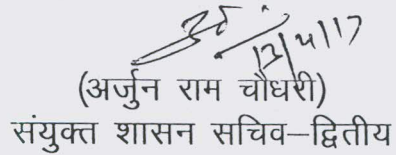 13/4/17
(अर्जुन राम चौधरी)
संयुक्त शासन सचिव–द्वितीय